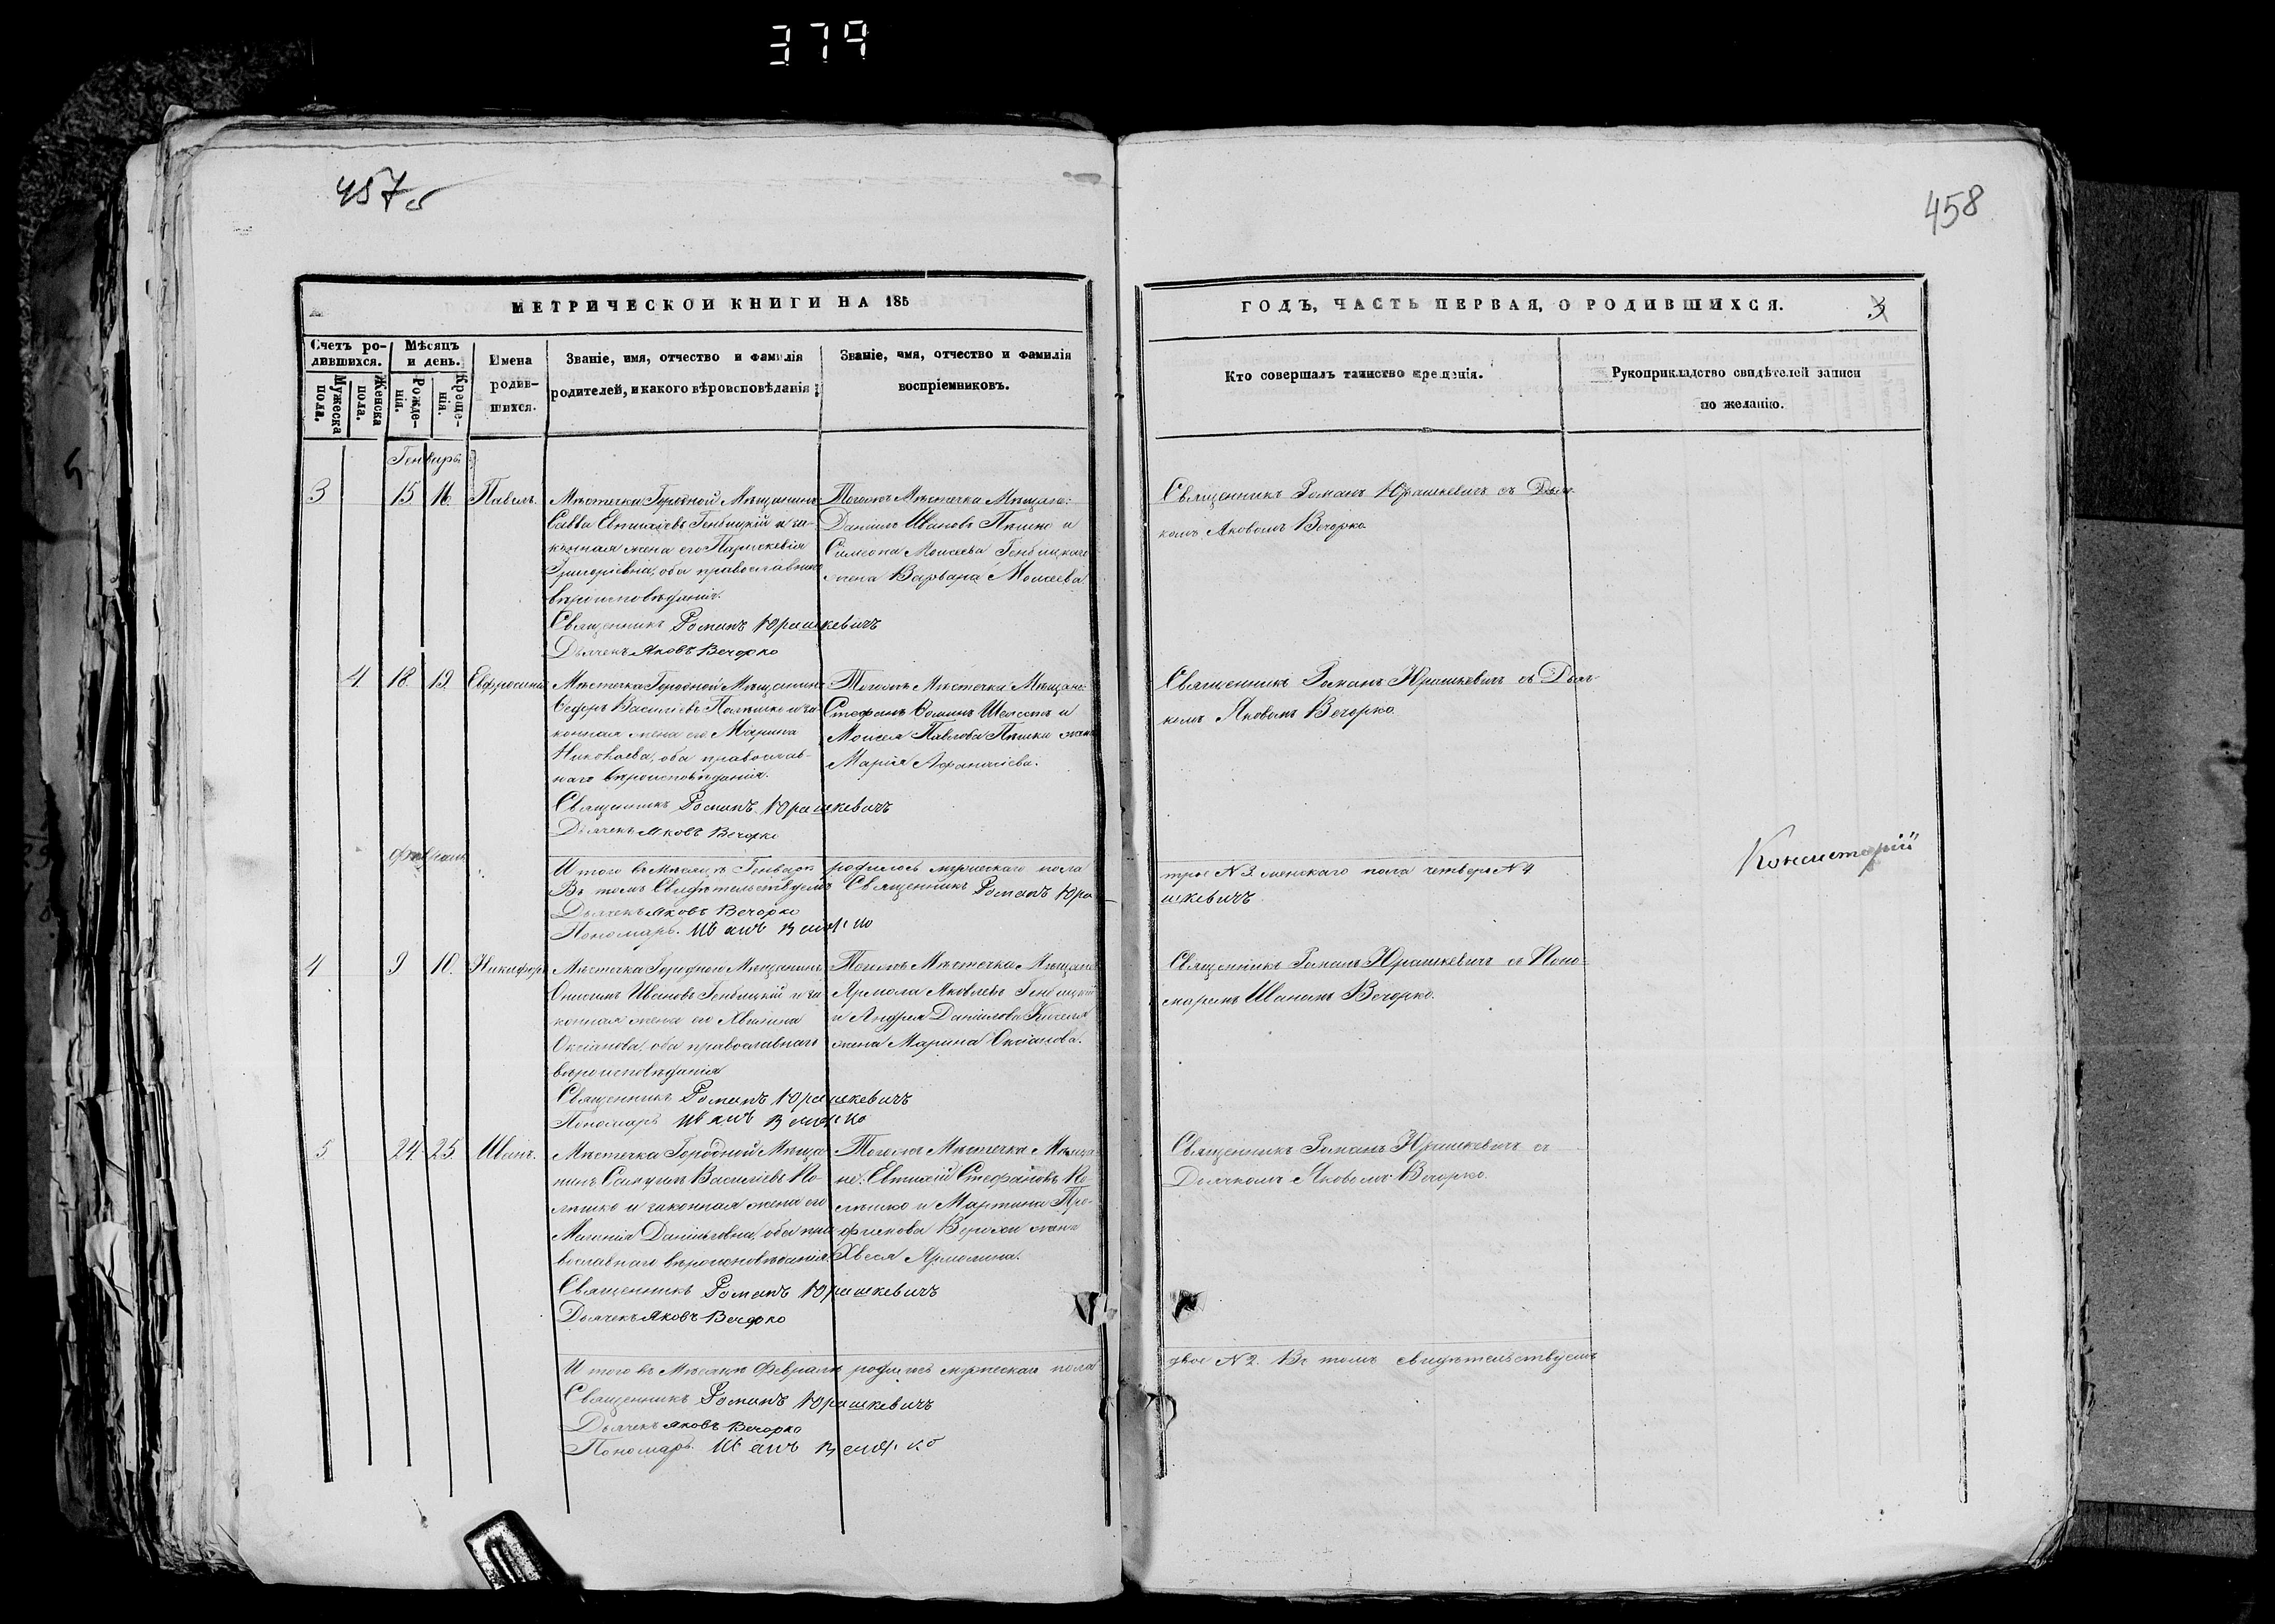 379
457
458
МЕТРИЧЕСКОЙ КНИГИ НА 185
ГОДЪ, ЧАСТЬ ПЕРВАЯ, О РОДИВШИХСЯ.
3
Счетъ ро-
дившихся.
Мужеска
пола.
Женска
пола.
Мѣсяцъ
и день.
Рожде-
нія.
Креще-
нія.
Имена
родив-
шихся.
Званіе, имя, отчество и фамилія
родителей, и какого вѣроисповѣданія
Званіе, имя, отчество и фамилія
воспріемниковъ.
Кто совершалъ таинство крещенія.
Рукоприкладство свидѣтелей записи
по желанію.
Генварь
3 15. 16. Павелъ.
Мѣстечка Городной Мѣщанинъ
Савва Евтихіевъ Генбицкій и за-
конная жена его Параскевія
Григоріевна, оба православнаго
вѣроисповѣданія.
Священникъ Романъ Юрашкевичъ
Дьячекъ Яковъ Вечорко
Тогожъ Мѣстечка Мѣщане:
Даніилъ Ивановъ Пѣшко и
Симеона Моисеева Генбицкаго
жена Варвара Моисеева
Священникъ Романъ Юрашкевичъ съ Дьяч-
комъ Яковомъ Вечорко.
4. 18. 19. Евфросинія
Мѣстечка Городной Мѣщанинъ
Ѳедоръ Василіевъ Полѣшко и за-
конная жена его Марина
Николаева, оба православ-
наго вѣроисповѣданія.
Священникъ Романъ Юрашкевичъ
Дьячекъ Яковъ Вечорко
Тогожъ Мѣстечка Мѣщане:
Стефанъ Ѳоминъ Шелестъ и
Моисея Павлова Пѣшки жена
Марія Аѳанасіева.
Священникъ Романъ Юрашкевичъ съ Дьяч-
комъ Яковомъ Вечорко.
Итого въ Мѣсяцѣ Генварѣ родилось мужескаго пола
трое № 3. женскаго пола четверо № 4
Въ томъ Свидѣтельствуемъ Священникъ Романъ Юра-
шкевичъ
Дьячекъ Яковъ Вечорко
Пономарь Иванъ Вечорко
Консисторіи
Февраль
4 9 10. Никифоръ
Мѣстечка Городной Мѣщанинъ
Онисимъ Ивановъ Генбицкій и за-
конная жена его
вѣроисповѣданія
Священникъ Романъ Юрашкевичъ
Пономарь Иванъ Вечорко
Тогожъ Мѣстечка Мѣщане
Ярмола Яковлевъ Генбицкій
и Андрея Даніилова Киселя
жена Марина
Священникъ Романъ Юрашкевичъ съ Поно-
маремъ Иваномъ Вечорко.
5 24. 25. Иванъ.
Мѣстечка Городной Мѣща-
нинъ Самуилъ Василіевъ По-
лѣшко и законная жена его
Даніиловна, оба пра-
вославнаго вѣроисповѣданія.
Священникъ Романъ Юрашкевичъ
Дьячекъ Яковъ Вечорко
Тогожъ Мѣстечка Мѣща-
не: Евтихій Стефановъ По-
лѣшко и Мартина Тро-
фимова жена
Хвеся Ярмолина.
Священникъ Романъ Юрашкевичъ съ
Дьячкомъ Яковомъ Вечорко.
Итого въ Мѣсяцѣ Февралѣ родилось мужескаго пола
двое № 2. Въ томъ свидѣтельствуемъ
Священникъ Романъ Юрашкевичъ
Дьячекъ Яковъ Вечорко
Пономарь Иванъ Вечорко